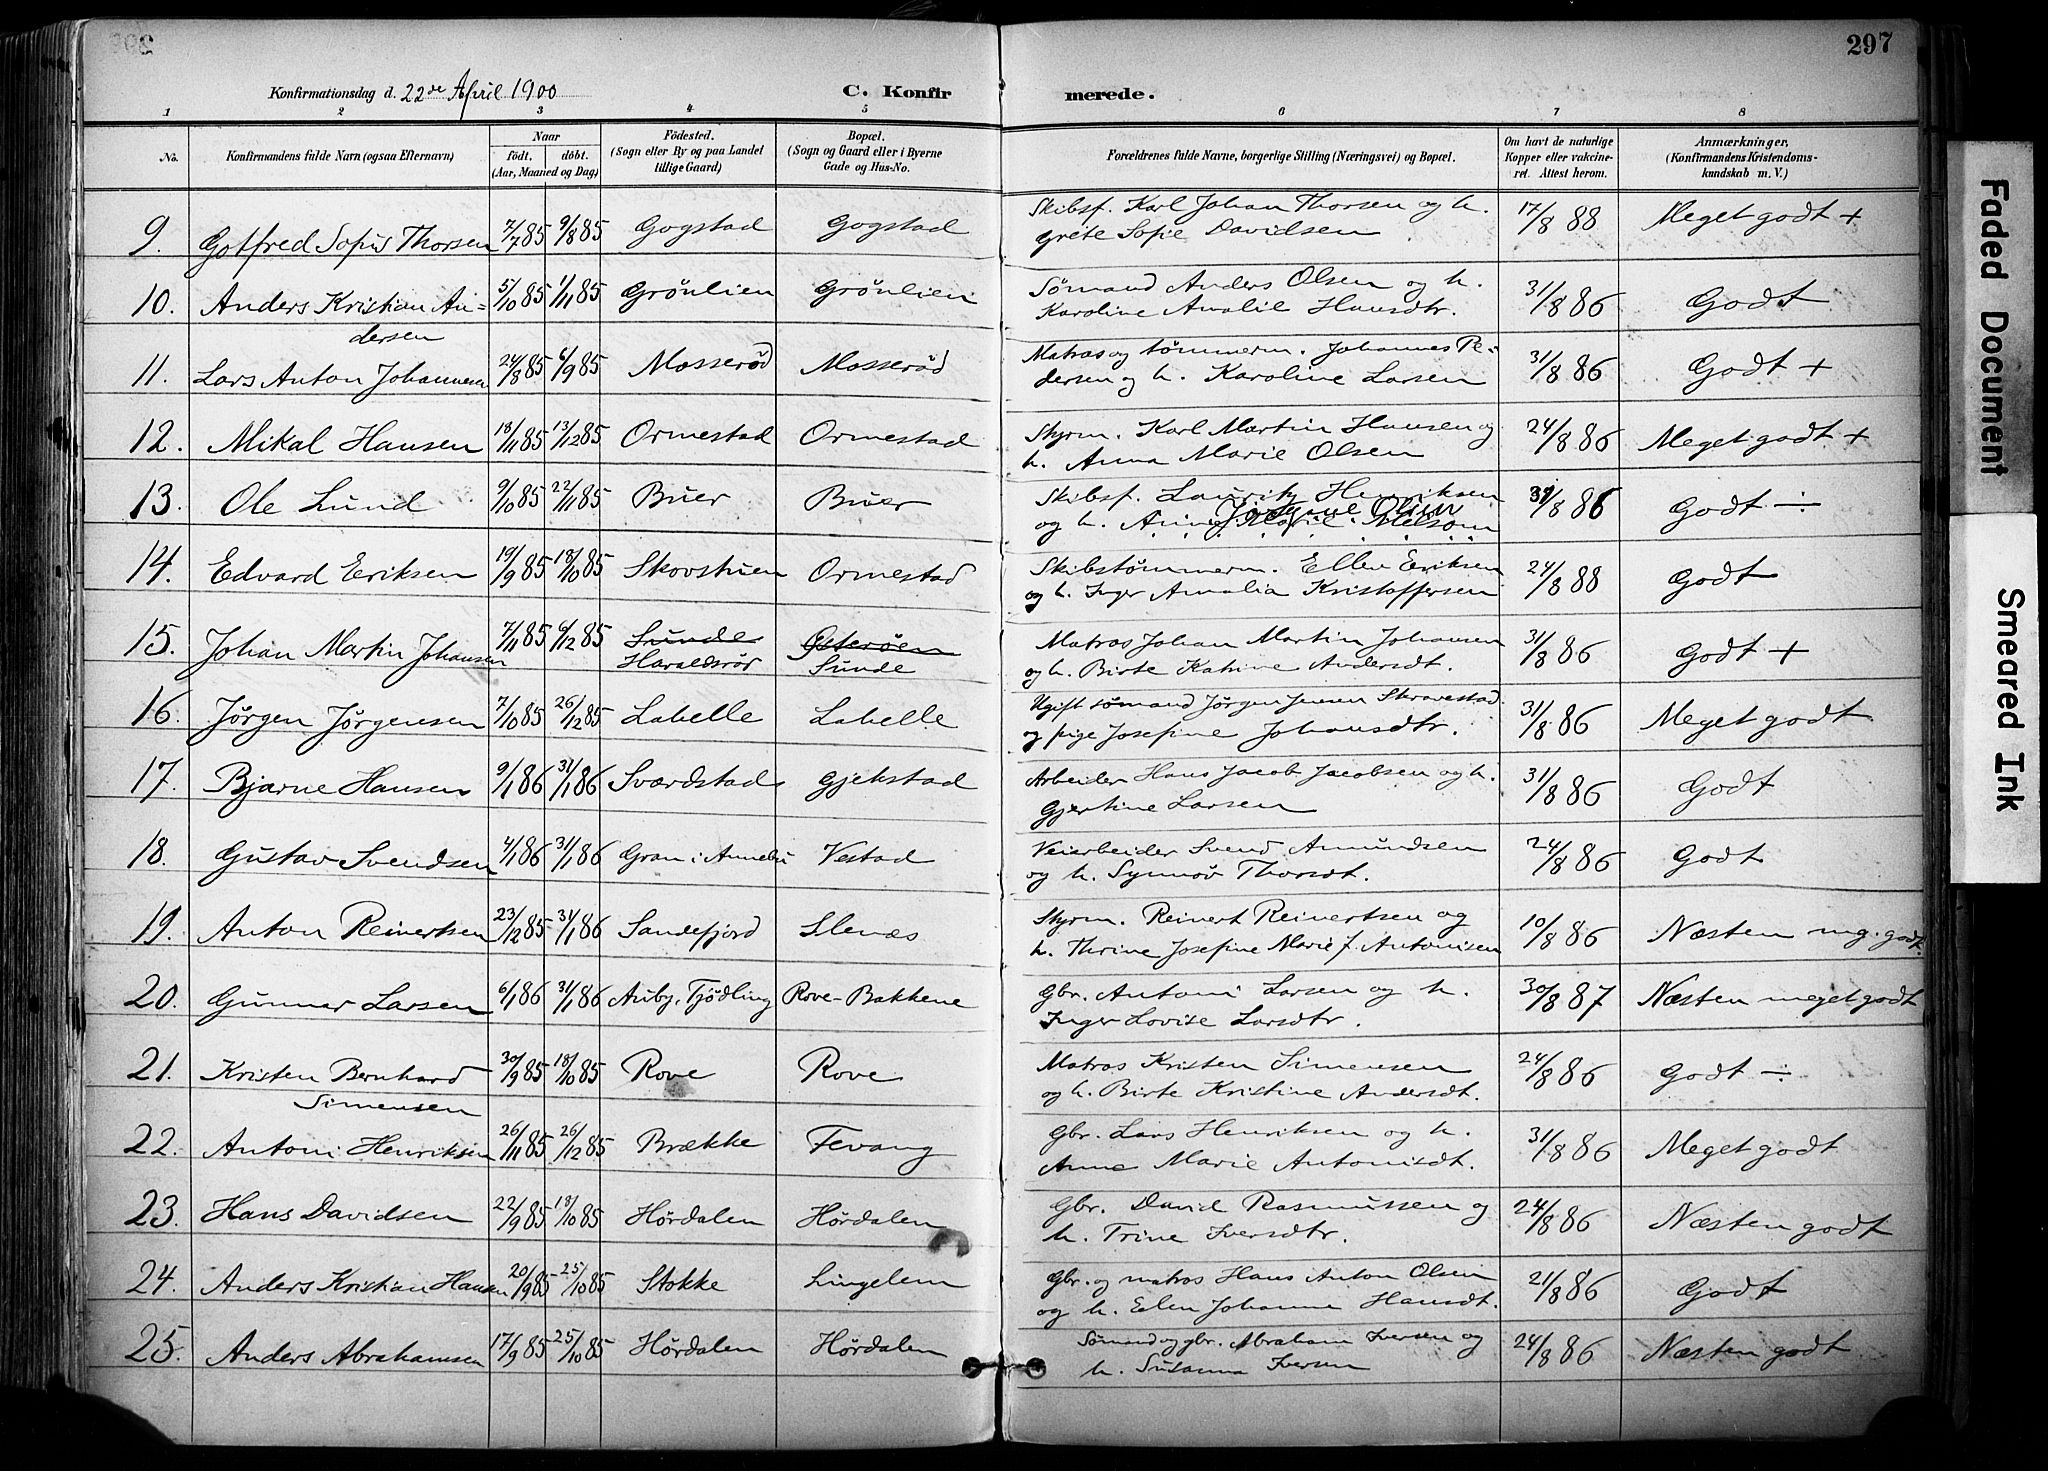 297
Konfirmationsdag d. 22de April 1900
C. Konfirmerede.
1 2 3 4 5 6 7 8
No.
Konfirmandens fulde Navn (ogsaa Efternavn)
Naar
födt, döbt.
(Aar, Maaned og Dag)
Födested.
(Sogn eller By og paa Landet
tillige Gaard)
Bopæl.
(Sogn og Gaard eller i Byerne
Gade og Hus-No.
Forældrenes fulde Navne, borgerlige Stilling (Næringsvei) og Bopæl.
Om havt de naturlige
Kopper eller vakcine-
ret. Attest herom.
Anmærkninger,
(Konfirmandens Kristendoms-
kundskab m. V.)
9. Gotfred Sofus Thorsen 7/7 85 9/8 85 Gogstad Gogstad Skibsf. Karl Johan Thorsen og h. 17/8 88 Meget godt +
Grete Sofie Davidsen
10. Anders Kristian An- 5/10 85 1/11 85 Grönlien Grönlien Sømand Anders Olsen og h. 31/8 86 Godt
dersen Karoline Amalie Hansdtr.
11. Lars Anton Johannesen 24/8 85 6/9 85 Mosserød Mosserød Matros og tømmerm. Johannes Pe- 31/8 86 Godt +
dersen og h. Karoline Larsen
12. Mikal Hansen 18/11 85 13/12 85 Ormestad Ormestad Styrm. Karl Martin Hansen og 24/8 86 Meget godt +
h. Anna Marie Olsen
13. Ole Lund 9/10 85 22/11 85 Buer Buer Skibsf. Lauritz Henriksen 31/8 86 Godt ÷
og h. Anne Marie Melsom
14. Edvard Eriksen 19/9 85 18/10 85 Skovstuen Ormestad Skibstømmerm. Ellen Eriksen 24/8 88 Godt
og h. Inger Amalia Kristoffersen
15. Johan Martin Johansen 7/11 85 6/12 85 Sunde Østerøen Matros Johan Martin Johansen 31/8 86 Godt +
Haraldsrør Sunde og h. Birte Katrine Andersdt.
16. Jørgen Jørgensen 7/10 85 26/12 85 Labelle Labelle Ugift sømand Jørgen Jensen Skravestad 31/8 86 Meget godt
og pige Josefine Johansdtr.
17. Bjarne Hansen 9/1 86 31/1 86 Sværdstad Gjekstad Arbeider Hans Jacob Jacobsen og h. 31/8 86 Godt
Gjertine Larsen
18. Gustav Svendsen 4/1 86 31/1 86 Gran i Annebu Vestad Veiarbeider Svend Amundsen 24/8 86 Godt
og h. Synnøv Thorsdt.
19. Anton Reinertsen 23/12 85 31/1 86 Sandefjord Slenæs Styrm. Reinert Reinertsen og 10/8 86 Næsten mg. godt.
h. Thrine Josefine Marie f. Antonisen
20. Gunnar Larsen 6/1 86 31/1 86 Auby, Tjödling Rove-Bakkene Gbr. Antoni Larsen og h. 30/8 87 Næsten meget godt
Inger Lovise Larsdtr.
21. Kristen Bernhard 30/9 85 18/10 85 Rove Rove Matros Kristen Simensen 24/8 86 Godt ÷
Simensen og h. Birte Kristine Andersdt.
22. Antoni Henriksen 26/11 85 26/12 85 Brække Fevang Gbr. Lars Henriksen og h. 31/8 86 Meget godt
Anne Marie Antonisdt.
23. Hans Davidsen 22/9 85 18/10 85 Hørdalen Hørdalen Gbr. David Rasmussen og 24/8 86 Næsten godt
h. Trine Iversdtr.
24. Anders Kristian Hansen 20/9 85 25/10 85 Stokke Lingelem Gbr. og matros Hans Anton Olsen 21/8 86 Godt
og h. Elen Johanne Hansdt.
25. Anders Abrahamsen 17/9 85 25/10 85 Hørdalen Hørdalen Sømand og gbr. Abraham Iversen og 24/8 86 Næsten godt
h. Susanna Iversen
Faded Document
Smeared Ink